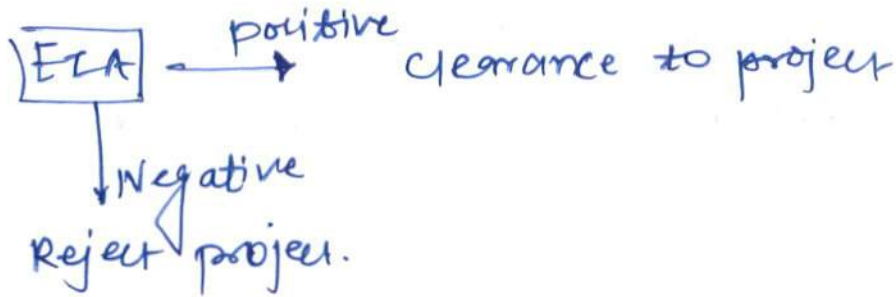 positive
EIA clearance to project
Negative
Reject project.